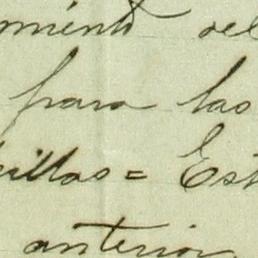 miento del
para las
illas = Est
anterior